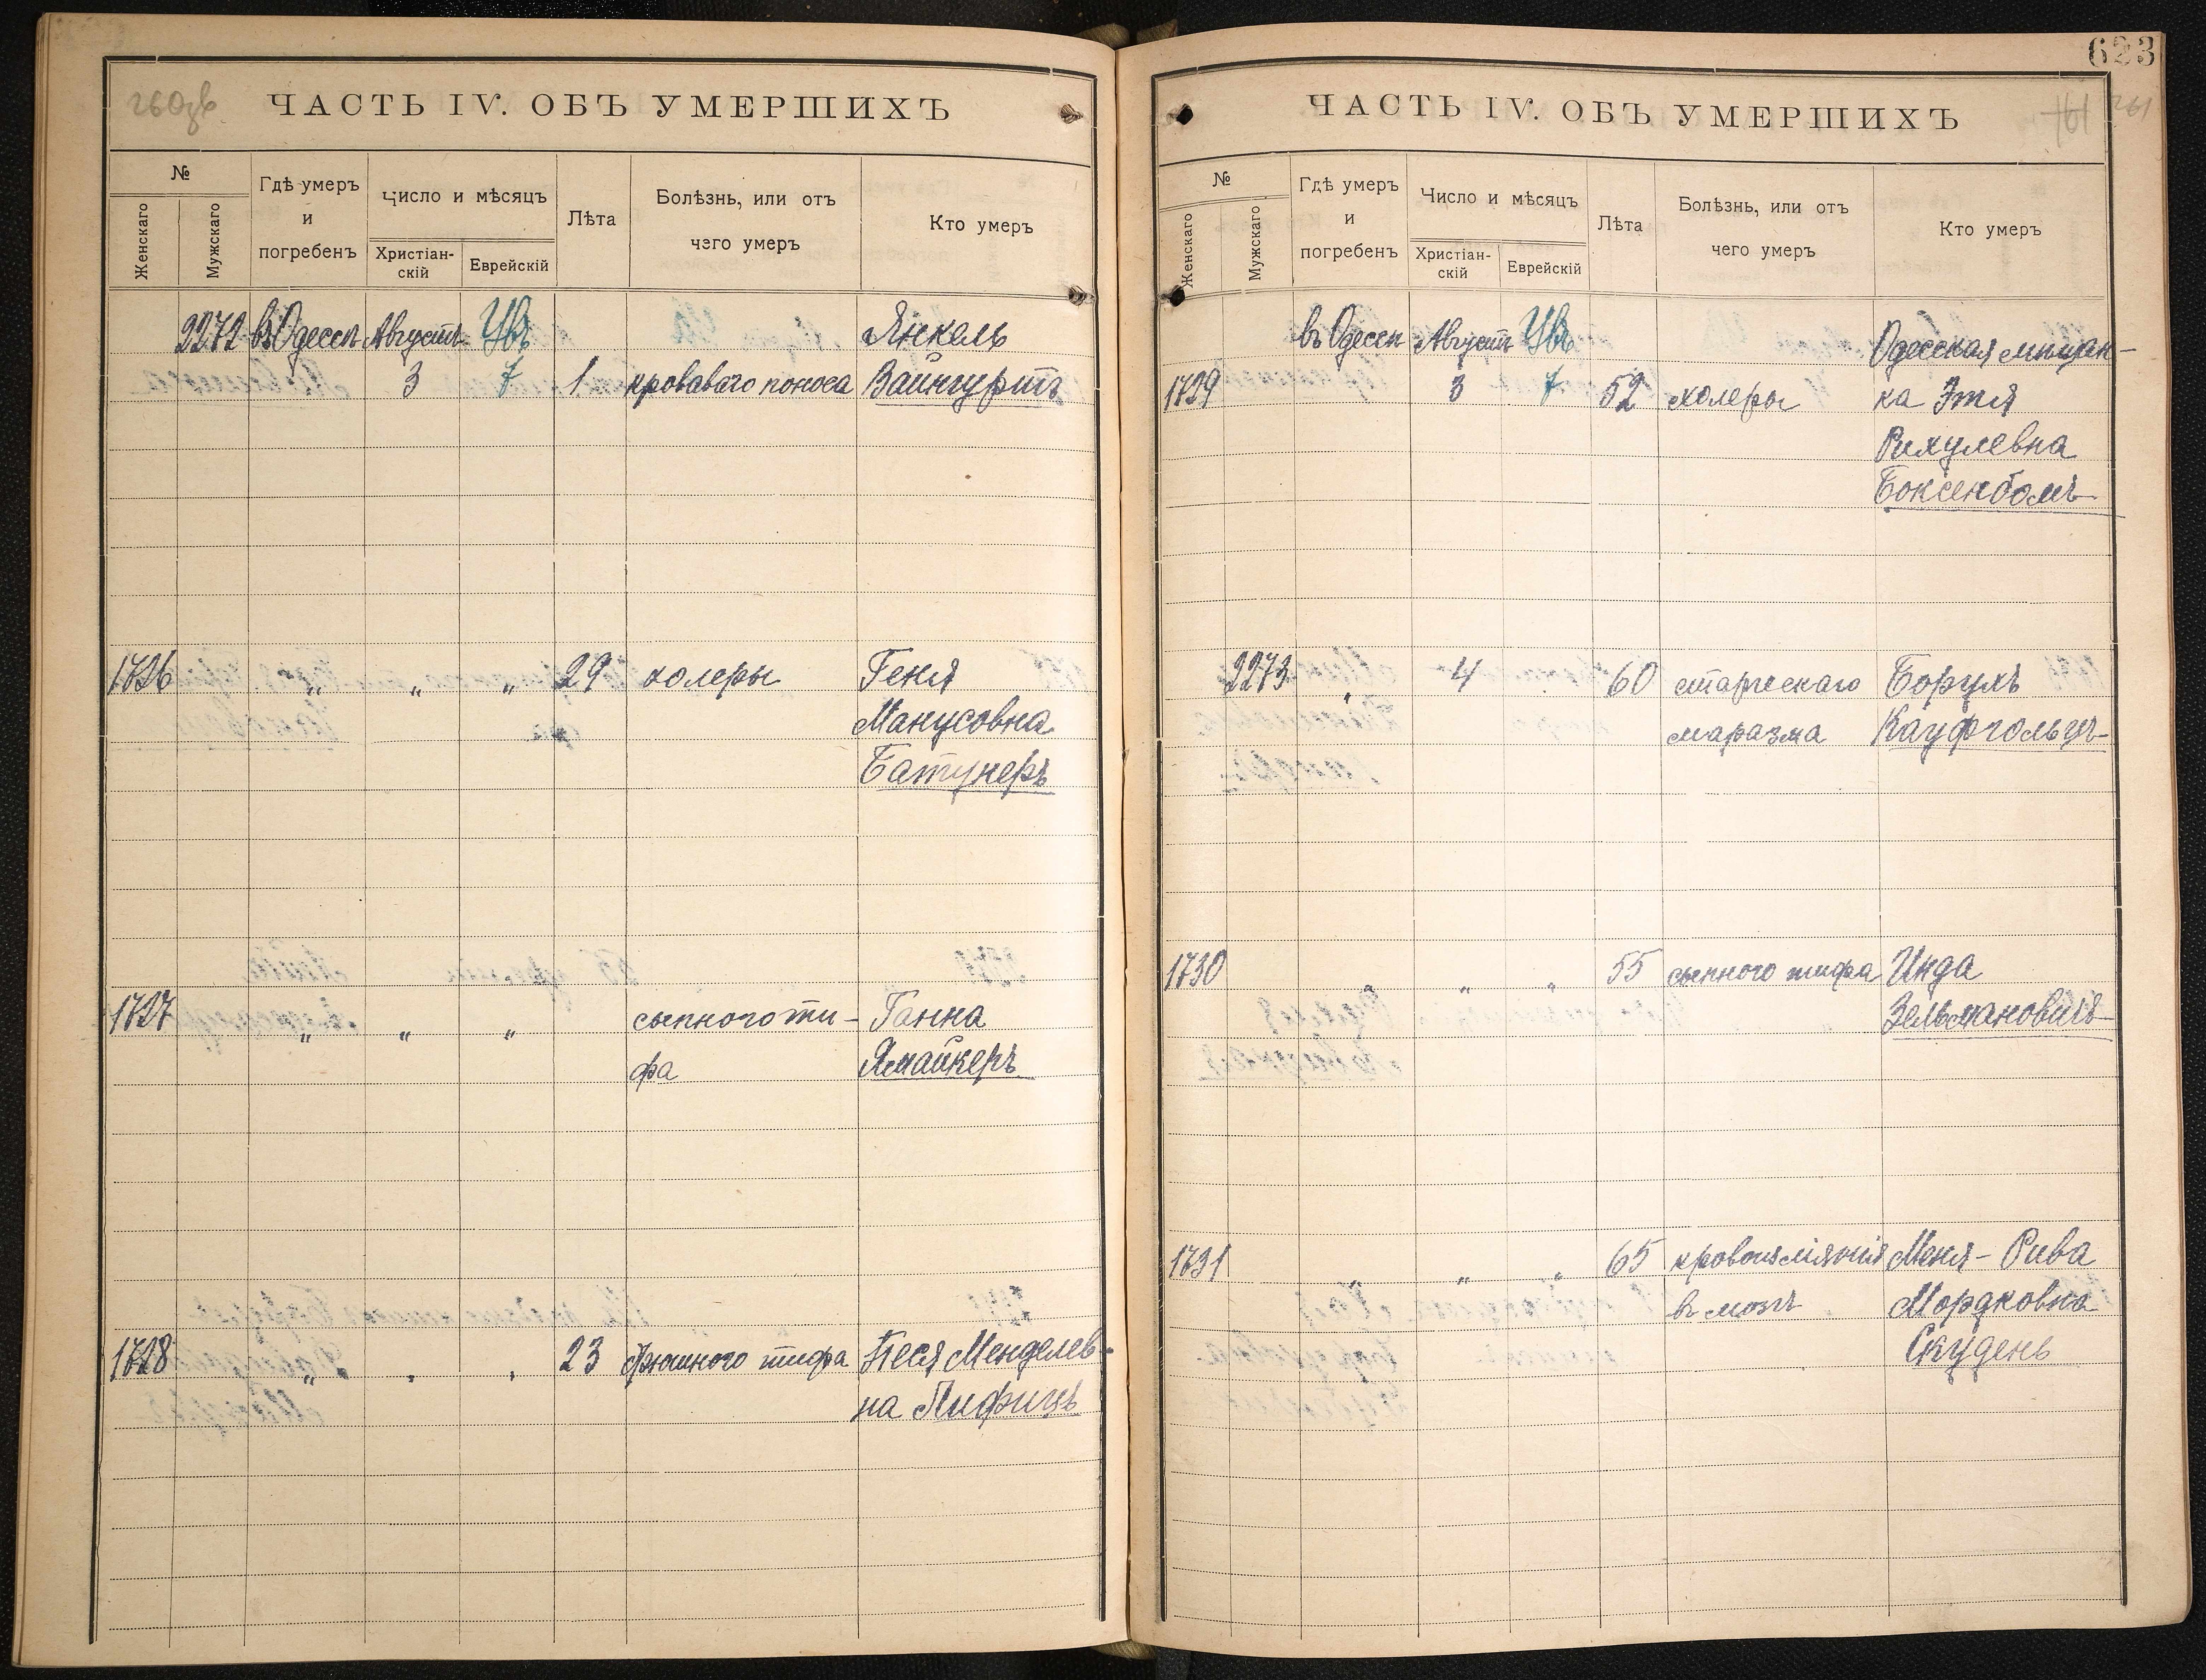 260 об.
ЧАСТЬ IV. ОБЪ УМЕРШИХЪ
№
Женскаго
Мужскаго
Гдѣ умеръ и погребенъ
Число и мѣсяцъ
Христіан-скій
Еврейскій
Лѣта
Болѣзнь, или отъ чего умеръ
Кто умеръ
2272 въ Одессѣ Августъ Увъ Янкель
3 7 1 кроваваго поноса Вайнгуртъ
1726 " " " 29 холеры Геня
Манусовна
Батунеръ
1727 " " " сыпного ти- Ганна
фа Ямайкеръ
1728 " " " 23 брюшного тифа Песя Менделев-
на Лифшицъ
623
261
ЧАСТЬ IV. ОБЪ УМЕРШИХЪ
№
Женскаго
Мужскаго
Гдѣ умеръ и погребенъ
Число и мѣсяцъ
Христіан-скій
Еврейскій
Лѣта
Болѣзнь, или отъ чего умеръ
Кто умеръ
въ Одессѣ Августъ Увъ Одесская мѣщан-
1729 3 7 52 холеры ка Этя
Рихулевна
Боксенбомъ
2273 " 4 60 старческаго Борухъ
маразма Кауфгольцъ
1730 " " " 55 сыпного тифа Инда
Зельмановичъ
1731 " " " 65 кровоизліянія Меня-Рива
въ мозгъ Мордковна
Скудень